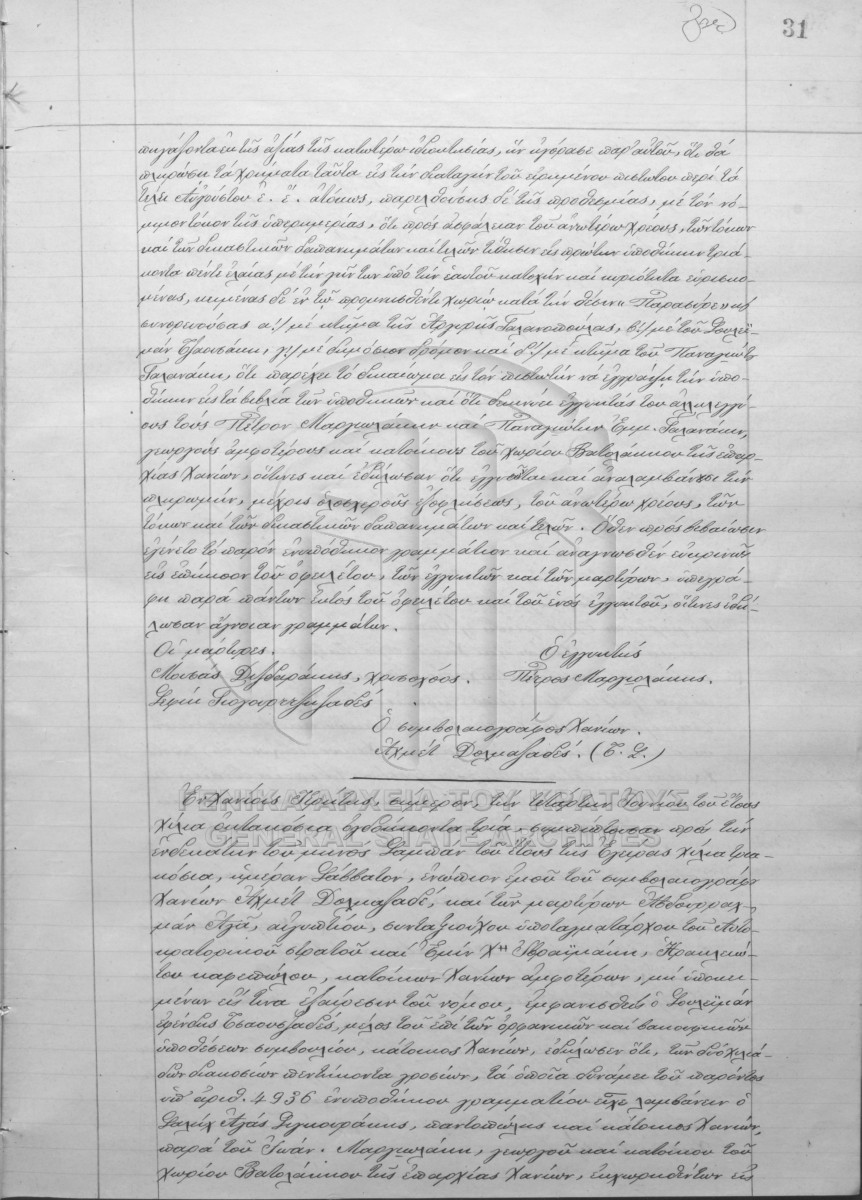 31
πηγάζοντα ἐκ τῆς ἀξίας τῆς κατωτέρω ἰδιοκτησίας, ἣν ἠγόρασε παρ' αὐτοῦ, ὅτι θὰ
πληρώσῃ τὰ χρήματα ταῦτα εἰς τὴν διαταγὴν τοῦ εἰρημένου πιστωτοῦ περὶ τὰ
τέλη Αὐγούστου ἐ. ἔ. ἀτόκως, παρελθούσης δὲ τῆς προθεσμίας, μὲ τὸν νό-
μιμον τόκον τῆς ὑπερημερίας, ὅτι πρὸς ἀσφάλειαν τοῦ ἀνωτέρω χρέους, τῶν τόκων
καὶ τῶν δικαστικῶν δαπανημάτων καὶ τελῶν τίθησιν εἰς πρώτην ὑποθήκην τριά-
κοντα πέντε ἐλαίας μὲ τὴν γῆν των ὑπὸ τὴν ἑαυτοῦ κατοχὴν καὶ κυριότητα εὑρισκο-
μένας, κειμένας δὲ ἐν τῷ προμνησθέντι χωρίῳ κατὰ τὴν θέσιν « Παρασύρι » κ
συνορευούσας α!) μὲ κτῆμα τῆς Ἀργυρῆς Γαλανοπούλας, β!) μὲ τοῦ Σουλεϊ-
μὰν Τζαουσάκη, γ!) μὲ δημόσιον δρόμον καὶ δ!) μὲ κτῆμα τοῦ Παναγιώτη
Γαλανάκη, ὅτι παρέχει τὸ δικαίωμα εἰς τὸν πιστωτὴν νὰ ἐγγράψῃ τὴν ὑπο-
θήκην εἰς τὰ βιβλία τῶν ὑποθηκῶν καὶ ὅτι δεικνύει ἐγγυητάς του ἀλληλεγγύ-
ους τοὺς Πέτρον Μαργιολάκην καὶ Παναγιώτην Ἐμμ. Γαλανάκην,
γεωργοὺς ἀμφοτέρους καὶ κατοίκους τοῦ χωρίου Βατολάκκου τῆς ἐπαρ-
χίας Χανίων, οἵτινες καὶ ἐδήλωσαν ὅτι ἐγγυῶνται καὶ ἀναλαμβάνουσι τὴν
πληρωμήν, μέχρις ὁλοσχεροῦς ἐξοφλήσεως, τοῦ ἀνωτέρω χρέους, τῶν
τόκων καὶ τῶν δικαστικῶν δαπανημάτων καὶ τελῶν. Ὅθεν πρὸς βεβαίωσιν
ἐγένετο τὸ παρὸν ἐνυπόθηκον γραμμάτιον καὶ ἀναγνωσθὲν εὐκρινῶς
εἰς ἐπήκοον τοῦ ὀφειλέτου, τῶν ἐγγυητῶν καὶ τῶν μαρτύρων, ὑπεγρά-
φη παρὰ πάντων ἐκτὸς τοῦ ὀφειλέτου καὶ τοῦ ἑνὸς ἐγγυητοῦ, οἵτινες ἐδή-
λωσαν ἄγνοιαν γραμμάτων.
Οἱ μάρτυρες. Ὁ ἐγγυητής
Μουσὰς Διζδαράκης, χρυσοχόος. Πέτρος Μαργιολάκης.
Σεφὶκ
Ὁ συμβολαιογράφος Χανίων.
Ἀχμὲτ Δολμαζαδέ. (Τ. Σ.)
ΓΕΝΙΚΑ ΑΡΧΕΙΑ ΤΟΥ ΚΡΑΤΟΥΣ
GENERAL STATE ARCHIVES
Ἐν Χανίοις Κρήτης, σήμερον, τὴν τετάρτην Ἰουνίου τοῦ ἔτους
χίλια ὀκτακόσια ὀγδοήκοντα τρία, συμπίπτουσαν πρὸς τὴν
ἑνδεκάτην τοῦ μηνὸς Σαμπὰν τοῦ ἔτους τῆς Ἐγείρας χίλια τρια-
κόσια, ἡμέραν Σάββατον, ἐνώπιον ἐμοῦ τοῦ συμβολαιογράφου
Χανίων Ἀχμὲτ Δολμαζαδέ, καὶ τῶν μαρτύρων Ἀβδουραχ-
μὰν Ἀγᾶ, αἰγυπτίου, συνταξιούχου ὑποταγματάρχου τοῦ Αὐτο-
κρατορικοῦ στρατοῦ καὶ Ἐμὶν Χ" Ἰβραϊμάκη, Ἡρακλειώ-
του καφεπώλου, κατοίκων Χανίων ἀμφοτέρων, μὴ ὑποκει-
μένων εἰς τινα ἐξαίρεσιν τοῦ νόμου, ἐμφανισθεὶς ὁ Σουλεϊμὰν
ἐφένδης Τσαουσζαδές, μέλος τοῦ ἐπὶ τῶν ὀρφανικῶν καὶ βακουφικῶν
ὑποθέσεων συμβουλίου, κάτοικος Χανίων, ἐδήλωσεν ὅτι, τῶν δύο χιλιά-
δων διακοσίων πεντήκοντα γροσίων, τὰ ὁποῖα δυνάμει τοῦ παρόντος
ὑπ' ἀριθ. 4936 ἐνυποθήκου γραμματίου εἶχε λαμβάνειν ὁ
Σαλὴχ Ἀγᾶς Λιγκουράκης, παντοπώλης καὶ κάτοικος Χανίων,
παρὰ τοῦ Ἰωάν. Μαργιολάκη, γεωργοῦ καὶ κατοίκου τοῦ
χωρίου Βατολάκκου τῆς ἐπαρχίας Χανίων, ἐκχωρηθέντων εἰς